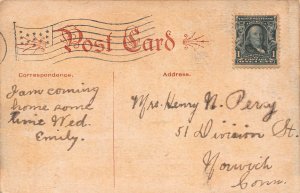 Post Card
Correspondence. Address.
I am coming
home some
time Wed.
Emily.
Mrs. Henry N. Perry
51 Division St.
Norwich
Conn.